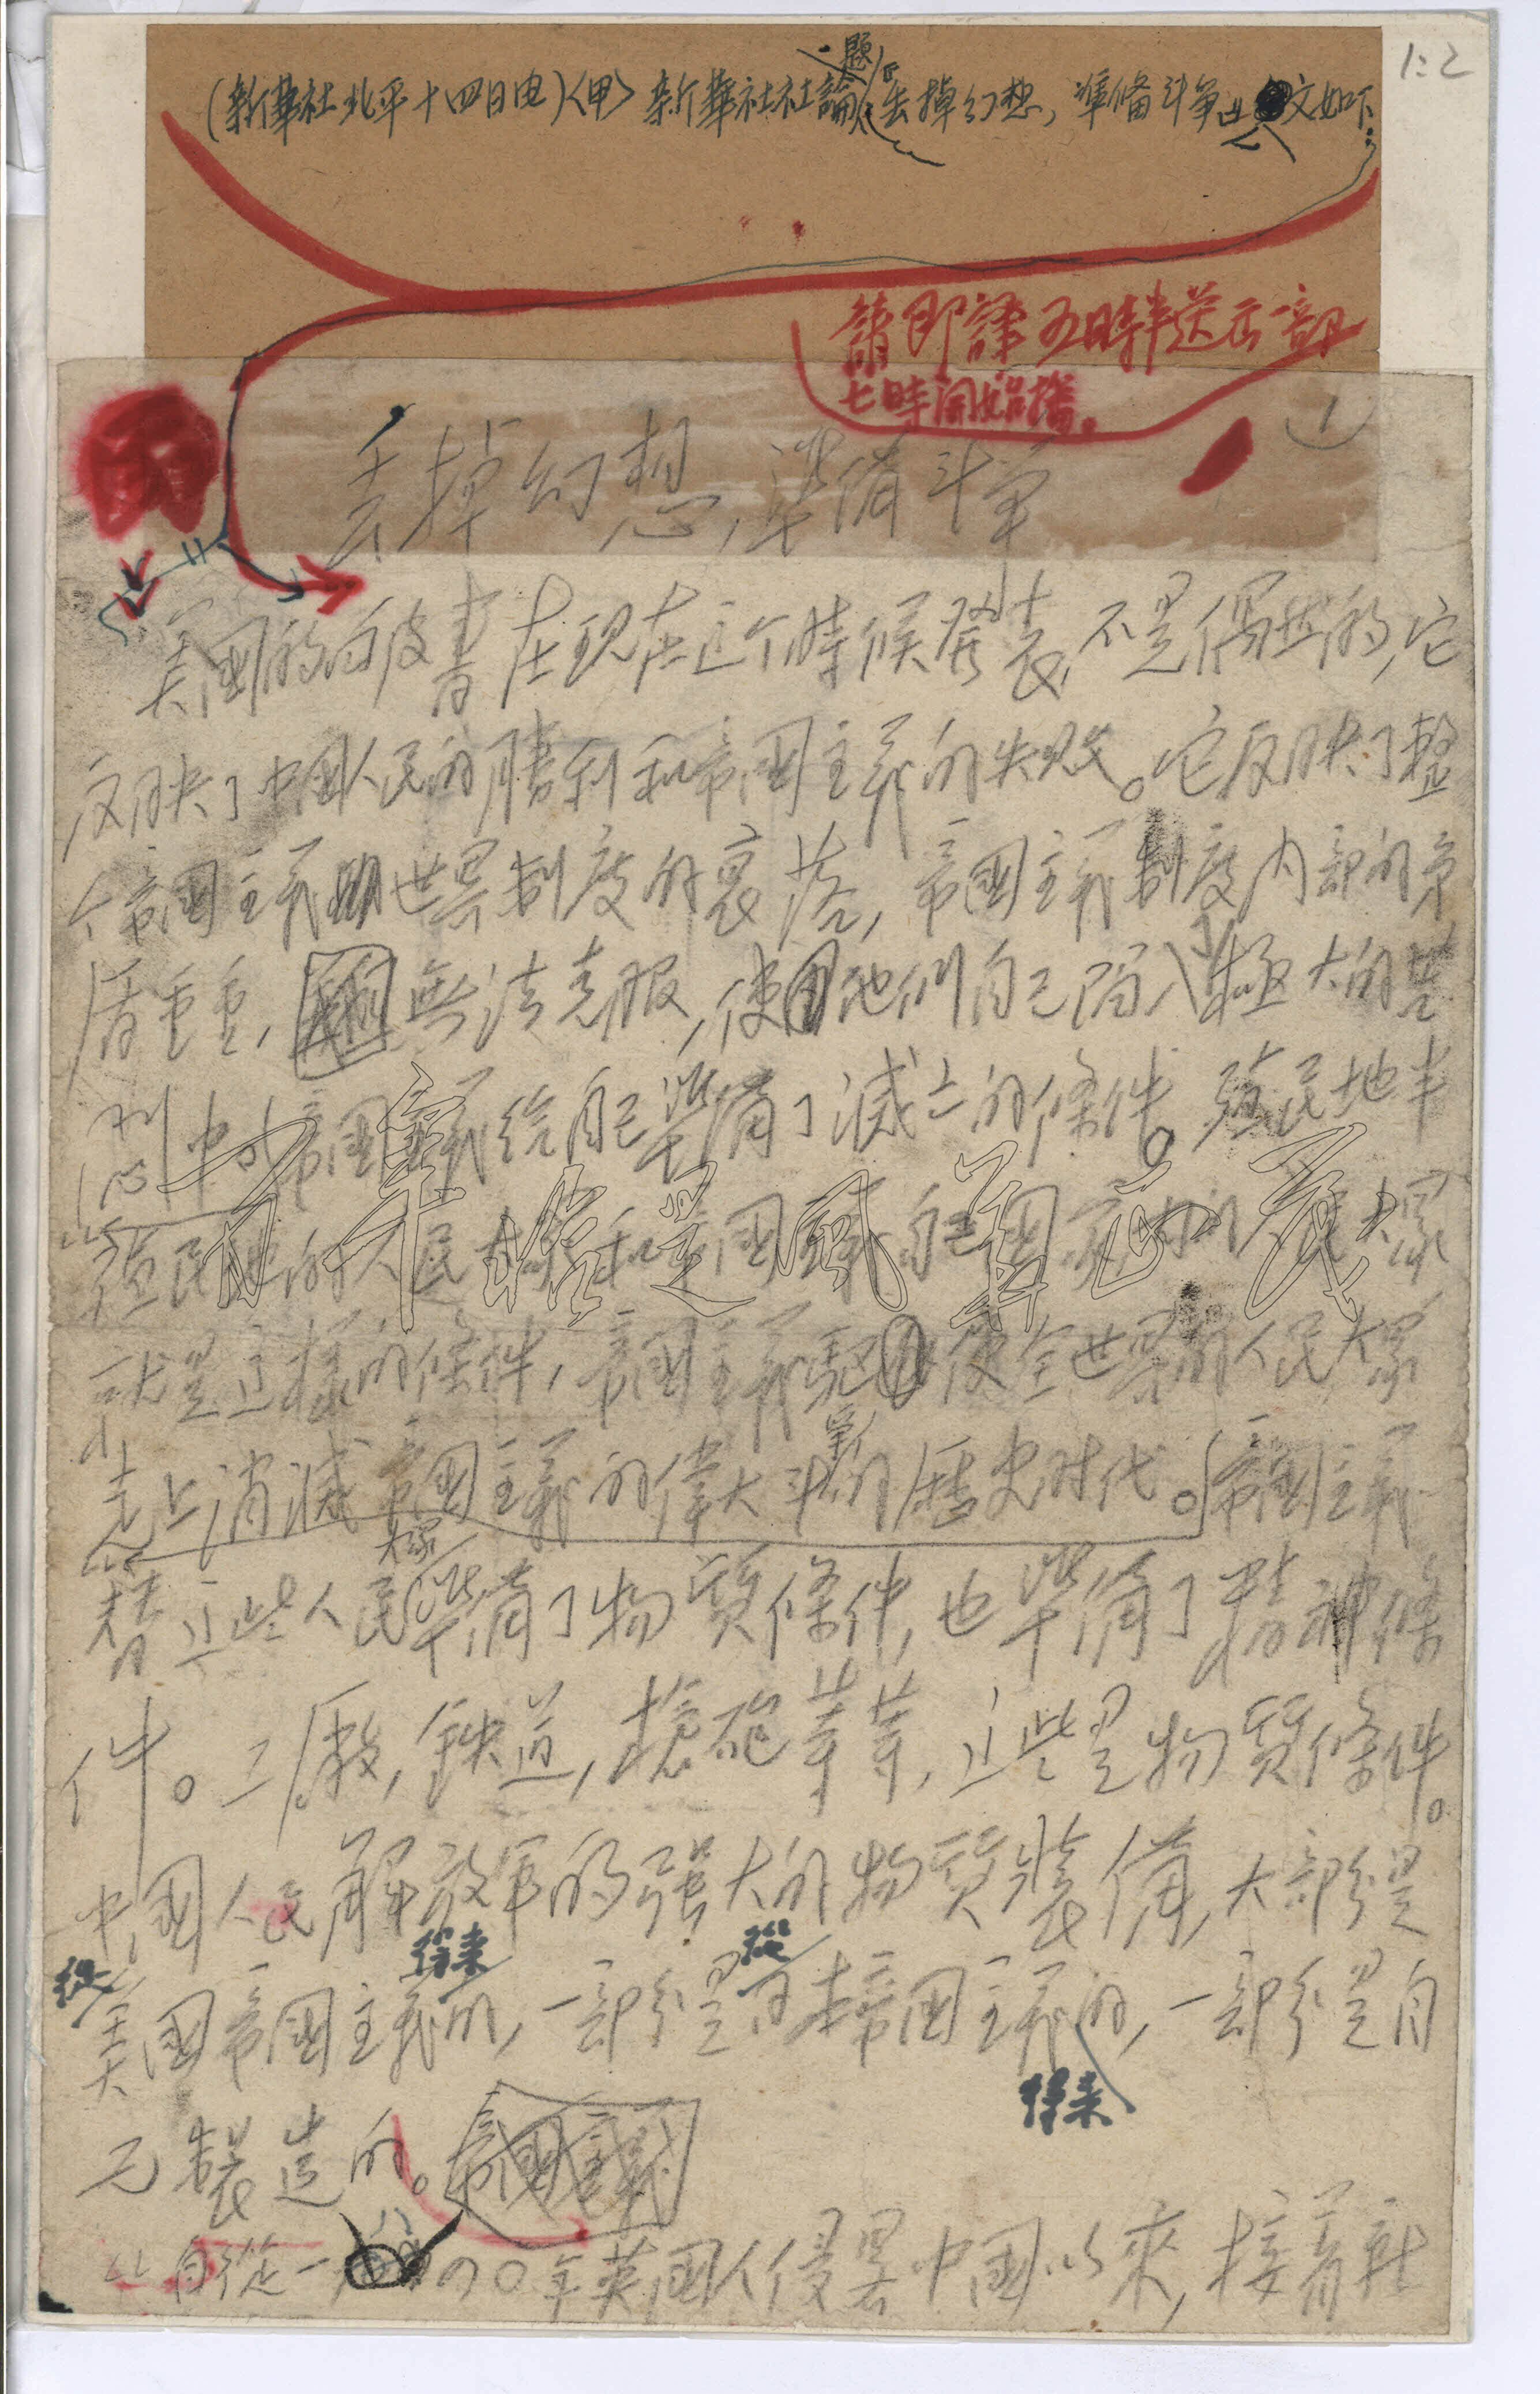 1:2
題
(新華社北平十四日电)〈甲〉新華社社論 丢掉幻想,準備斗争 文如下:
請即譯五時半送 部
七時開始播。
1
丢掉幻想,準備斗争
美國的白皮書在現在这个時候發表,不是偶然的,它
反映了中國人民的勝利和帝國主義的失敗。它反映了整
个帝國主義世界制度的衰落,帝國主義制度内部的矛
盾重重,無法克服,使他們自己陷入了極大的苦
悶中。帝國主義給自己準備了滅亡的條件。殖民地半
殖民地的人民大眾和帝國主義自己國家内的人民大眾
就是这樣的條件,帝國主義驅使全世界的人民大眾
走上消滅帝國主義的偉大斗争的歷史时代。帝國主義
大眾
替这些人民準備了物質條件,也準備了精神條
件。工廠,鉄道,槍砲等等,这些是物質條件。
中國人民解放軍的强大的物質装備,大部分是
從 得來 從
美國帝國主義的,一部分是日本帝國主義的,一部分是自
得来
己製造的。
自從一八四〇年英國人侵畧中國以來,接着就